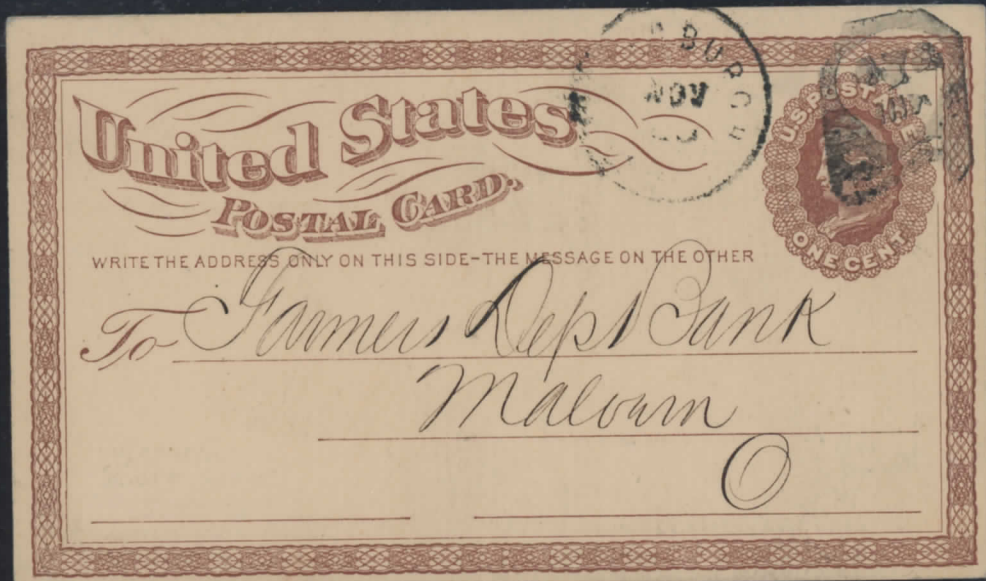 United States
POSTAL CARD.
BURGH
NOV
U.S. POSTAGE
ONE CENT
WRITE THE ADDRESS ONLY ON THIS SIDE-THE MESSAGE ON THE OTHER
To Farmers Dept Bank
Malvern
O